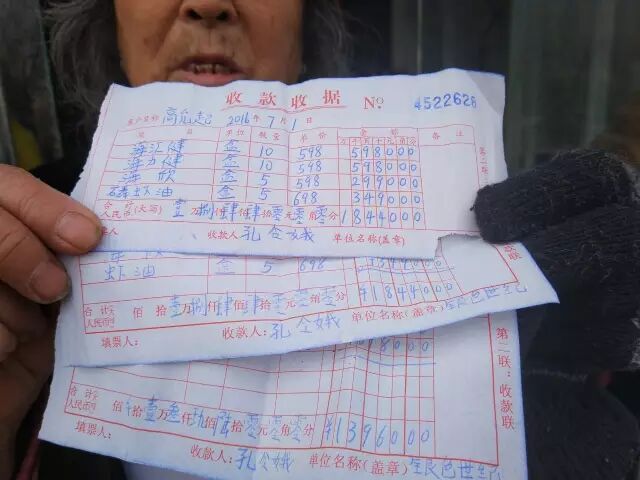 收款收据 No 4522626
客户名称 2016年7月1日
项目 单位 数量 单价 金额 备注
万千百十元角分
海汇健 盒 10 598 598000
海力健 盒 10 598 598000
海欣 盒 5 598 299000
磷虾油 盒 5 698 349000
合计人民币(大写) 壹万捌仟肆佰肆拾零元零角零分 1844000
票人 收款人 孔令娥 单位名称(盖章)
第二联:
虾油 盒 5 698
合计人民币 佰拾壹万捌仟肆佰肆拾零元零角零分 ¥1844000
填票人: 收款人: 孔令娥 单位名称(盖章) 金色世纪
第二联:收款联
合计人民币 佰拾壹万叁仟玖佰陆拾零元零角零分 ¥1396000
填票人: 收款人: 孔令娥 单位名称(盖章)